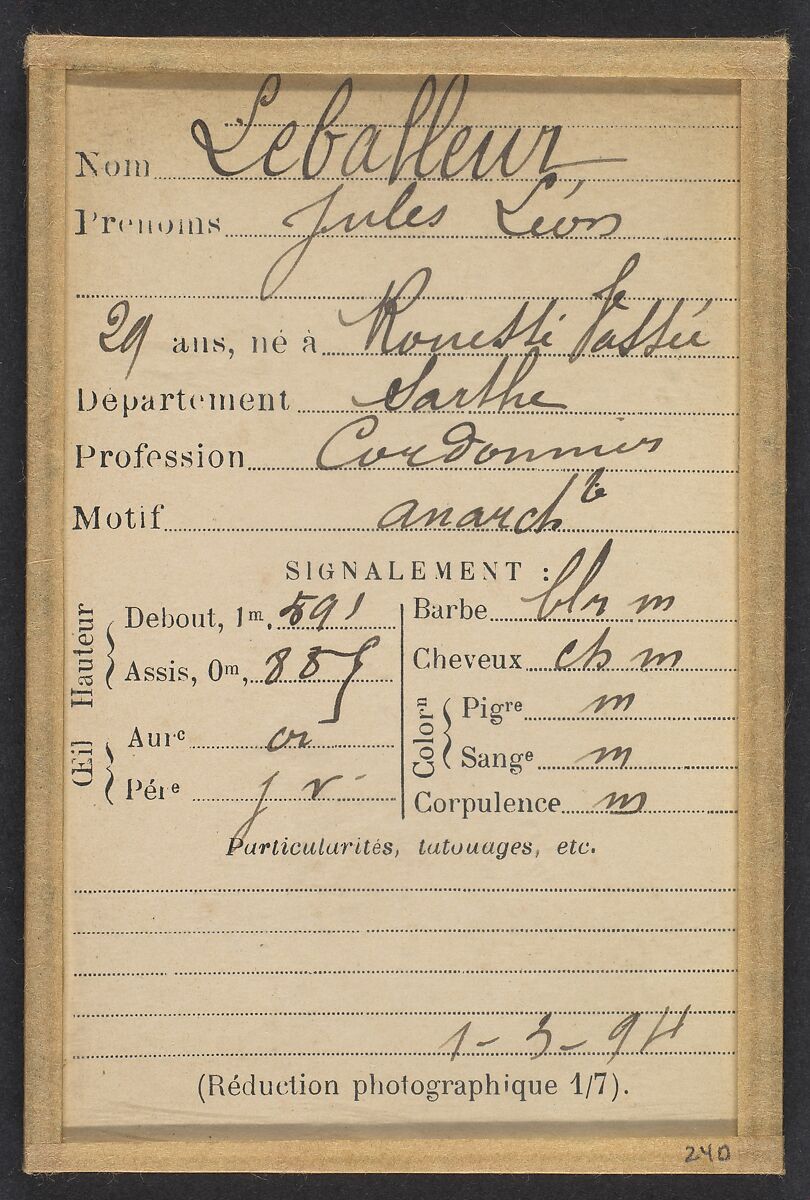 Nom Leballeur
Prénoms Jules Léon
29 ans, né à Rouessé Vassée
Département Sarthe
Profession Cordonnier
Motif anarchte
SIGNALEMENT :
Hauteur
Debout, 1m, 591
Assis, 0m, 885
Œil
Aurᶜ or
Pérᵉ j v
Barbe blr m
Cheveux ch m
Colorⁿ
Pigʳᵉ m
Sangᵉ m
Corpulence m
Particularités, tatouages, etc.
1-3-94
(Réduction photographique 1/7).
240